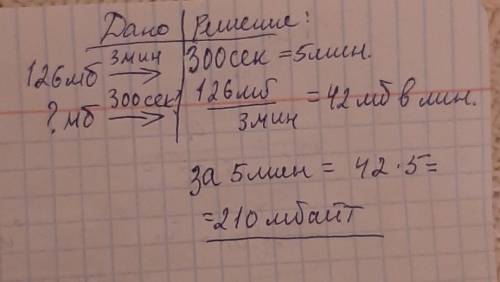 Дано Решение:
126мб 3мин 300сек = 5мин.
? мб 300сек 126мб / 3мин = 42 мб в мин.
за 5мин = 42 · 5 =
= 210 мбайт